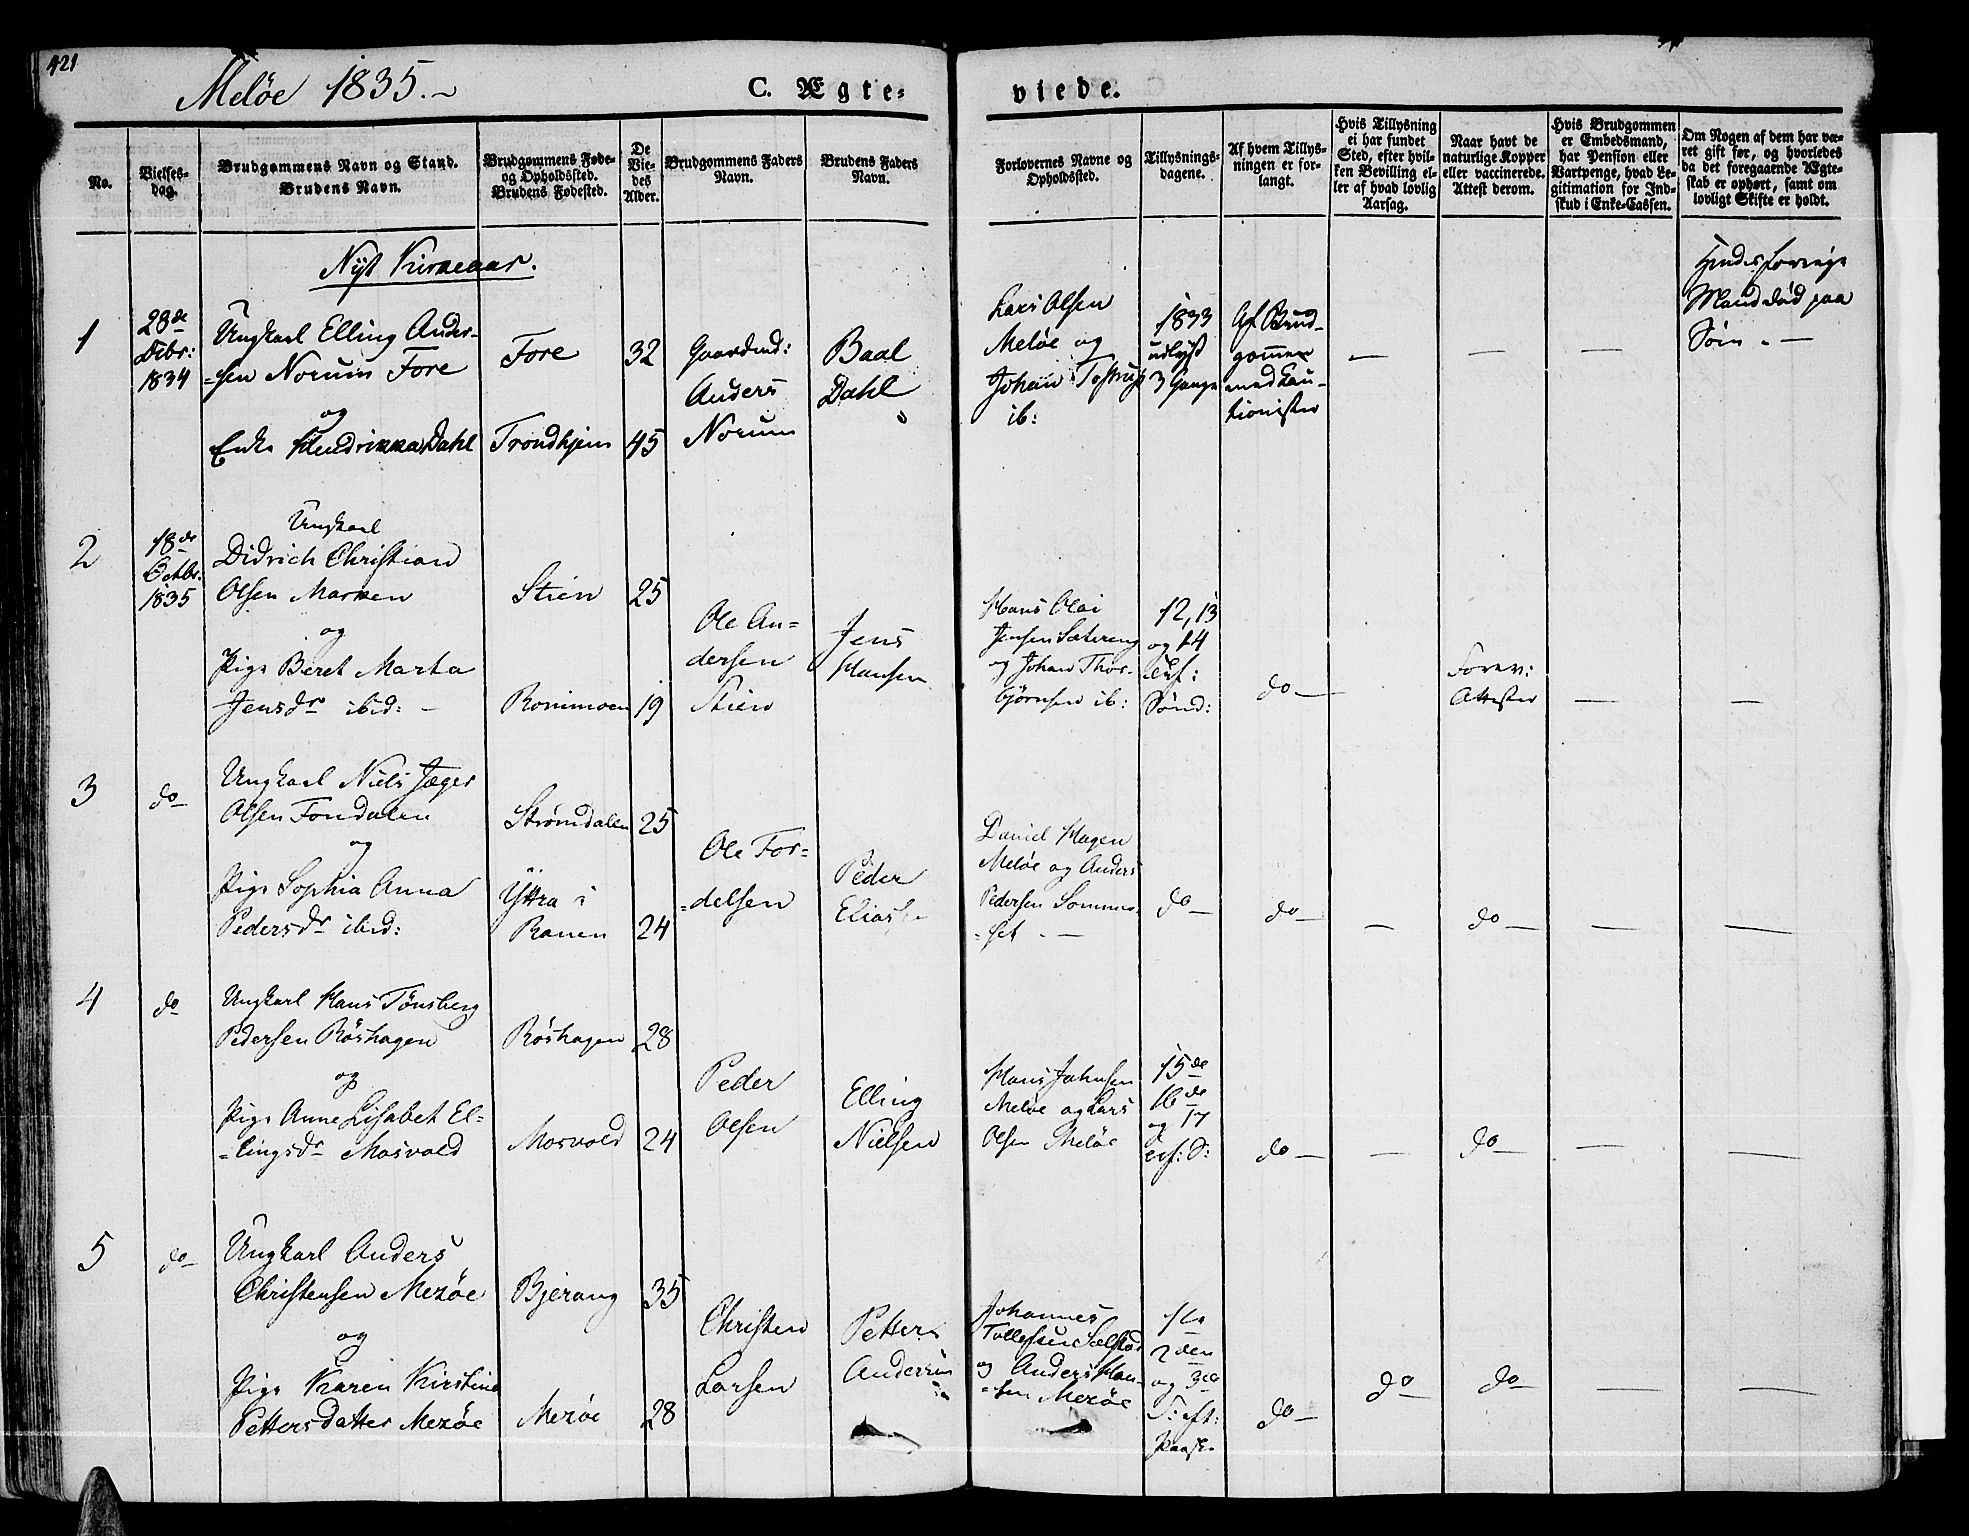 421
Meløe 1835.
C. Ægte=
viede.
No.
Vielses-
dag.
Brudgommens Navn og Stand.
Brudens Navn.
Brudgommens Føde-
og Opholdssted.
Brudens Fødested.
De
Vie-
des
Alder.
Brudgommens Faders
Navn.
Brudens Faders
Navn.
Forlovernes Navne og
Opholdssted.
Tillysnings-
dagene.
Af hvem Tillys-
ningen er for-
langt.
Hvis Tillysning
ei har fundet
Sted, efter hvil-
ken Bevilling el-
ler af hvad lovlig
Aarsag.
Naar havt de
naturlige Kopper
eller vaccinerede.
Attest derom.
Hvis Brudgommen
er Embedsmand,
har Pension eller
Vartpenge, hvad Le-
gitimation for Ind-
skud i Enke-Cassen.
Om Nogen af dem har væ-
ret gift før, og hvorledes
da det foregaaende Ægte-
skab er ophørt, samt om
lovligt Skifte er holdt.
Nyt Kirkeaar.
1
28de
Debr:
1834
Ungkarl Elling Ander-
=sen Norum Fore
og
Enke Hendrikka Dahl
Fore
Trondhjem
32
45
Gaardmd:
Anders
Norum
Baal
Dahl
Lars Olsen
Meløe og
Johan Tostrup
ib:
1833
udlyst
3 Gange
Af Brud-
gommen
med Cau-
tionister
—
—
—
Hendes forrige
Mand død paa
Søin. —
2
18de
Octbr:
1835
Ungkarl
Didrich Christian
Olsen Marken
og
Pige Beret Marta
Jensdr ibid: —
Stien
Ronimoen
25
19
Ole An=
dersen
Stien
Jens
Hansen
Hans Olai
Jensen Sætereng
og Johan Thor-
bjørnsen ib:
12, 13
og 14
Sønd:
do —
Forev:
Attester
—
—
3
do
Ungkarl Niels Jæger
Olsen Fondalen
og
Pige Sophia Anna
Pedersdr ibid:
Strømdalen
Yttra i
Ranen
25
24
Ole For=
=delsen
Peder
Eliassen
Daniel Hagen
Meløe og Anders
Pedersen Sommer-
=set. —
do —
do —
—
do —
—
—
4
do
Ungkarl Hans Tønsberg
Pedersen Røshagen
og
Pige Anne Lisabet El=
=lingsdr Mosvold
Røshagen
Mosvold
28
24
Peder
Olsen
Elling
Nielsen
Hans Johnsen
Meløe og Lars
Olsen Meløe
15de
16de
og 17
do —
—
do —
—
—
5
do
Ungkarl Anders
Christensen Mesøe
og
Pige Karen Kirstine
Pettersdatter Mesøe
Bjerang
Mesøe
35
28
Christen
Larsen
Petter
Andersen
Johannes
Tollefsen Selstad
og Anders Han-
=sen Mesøe
1te
2den
og 3de
S: eft:
Paaske
do —
do
do —
—
—